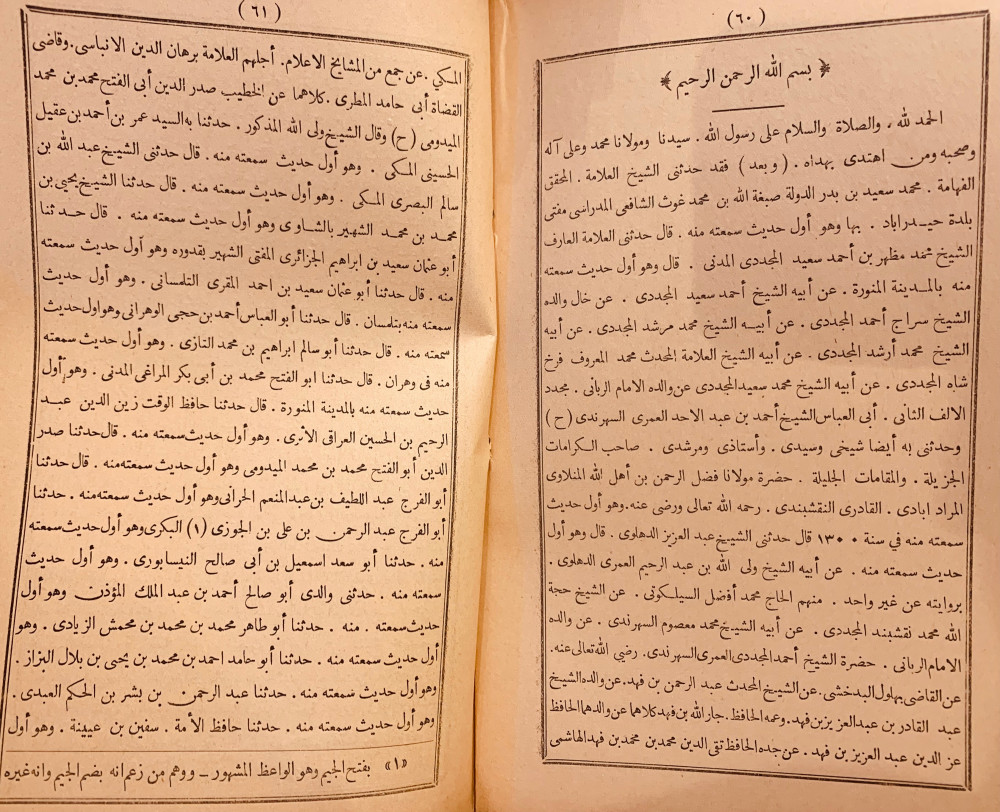 ( ٦٠ )
﴿ بسم الله الرحمن الرحيم ﴾
الحمد لله ، والصلاة والسلام على رسول الله . سيدنا ومولانا محمد وعلى آله
وصحبه ومن اهتدى بهداه . ( وبعد ) فقد حدثنى الشيخ العلامة . المحقق
الفهامة . محمد سعيد بن بدر الدولة صبغة الله بن محمد غوث الشافعى المدراسى مفتى
بلدة حيـدراباد . بها وهو أول حديث سمعته منه . قال حدثنى العلامة العارف
الشيخ محمد مظهر بن أحمد سعيد المجددى المدنى . قال وهو أول حديث سمعته
منه بالمـدينة المنورة . عن أبيه الشيخ أحمد سعيد المجددى . عن خال والده
الشيخ سراج أحمد المجددى . عن أبيـه الشيخ محمد مرشد المجددى . عن أبيه
الشيخ محمد أرشد المجددى . عن أبيه الشيخ العلامة المحدث محمد المعروف فرخ
شاه المجددى . عن أبيه الشيخ محمد سعيد المجددى عن والده الامام الربانى . مجدد
الالف الثانى . أبى العباس الشيخ أحمد بن عبد الاحد العمرى السهرندى ( ح )
وحدثنى به أيضا شيخى وسيدى . وأستاذى ومرشدى . صاحب الكرامات
الجزيلة . والمقامات الجليلة . حضرة مولانا فضل الرحمن بن أهل الله المنلاوى
المراد ابادى . القادرى النقشبندى . رحمه الله تعالى ورضى عنه . وهو أول حديث
سمعته منه في سنة ١٣٠٠ قال حدثنى الشيخ عبد العزيز الدهلوى . قال وهو أول
حديث سمعته منه . عن أبيه الشيخ ولى الله بن عبد الرحيم العمرى الدهلوى .
بروايته عن غير واحد . منهم الحاج محمد أفضل السيلكوتى . عن الشيخ حجة
الله محمد نقشبند المجددى . عن أبيه الشيخ محمد معصوم السهرندى . عن والده
الامام الربانى . حضرة الشيخ أحمد المجددى العمرى السهرندى . رضي الله تعالى عنه .
عن القاضى بهلول البدخشى . عن الشيخ المحدث عبد الرحمن بن فهد . عن والده الشيخ
عبد القادر بن عبد العزيز بن فهد . وعمه الحافظ . جار الله بن فهد كلاهما عن والدهما الحافظ
عز الدين عبد العزيز بن فهد . عن جده الحافظ تقى الدين محمد بن محمد بن فهد الهاشمى
( ٦١ )
المكي . عن جمع من المشايخ الاعلام . أجلهم العلامة برهان الدين الانباسى . وقاضى
القضاة أبى حامد المطرى . كلاهما عن الخطيب صدر الدين أبى الفتح محمد بن محمد
الميدومى ( ح ) وقال الشيخ ولى الله المذكور . حدثنا به السيد عمر بن أحمد بن عقيل
الحسينى المكى . وهو أول حديث سمعته منه . قال حدثنى الشيخ عبد الله بن
سالم البصرى المكى . وهو أول حديث سمعته منه . قال حدثنا الشيخ يحيى بن
محمـد بن محمـد الشهير بالشاوى وهو أول حديث سمعته منه . قال حـدثنا
أبو عثمان سعيد بن ابراهيم الجزائرى المفتى الشهير بقدوره وهو أول حديث سمعته
منه . قال حدثنا أبو عثمان سعيد بن احمد المقرى التلمسانى . وهو أول حديث
سمعته منه بتلمسان . قال حدثنا أبو العباس أحمد بن حجى الوهرانى وهو اول حديث
سمعته منه . قال حدثنا أبو سالم ابراهيم بن محمد التازى . وهو أول حديث سمعته
منه فى وهران . قال حدثنا ابو الفتح محمد بن أبى بكر المراغى المدنى . وهو أول
حديث سمعته منه بالمدينة المنورة . قال حدثنا حافظ الوقت زين الدين عبـد
الرحيم بن الحسين العراقى الأثرى . وهو أول حديث سمعته منه . قال حدثنا صدر
الدين أبو الفتح محمد بن محمد الميدومى وهو أول حديث سمعته منه . قال حدثنا
أبو الفرج عبد اللطيف بن عبد المنعم الحرانى وهو أول حديث سمعته منه . حدثنا
أبو الفرج عبد الرحمن بن على بن الجوزى (١) البكرى وهو أول حديث سمعته
منه . حدثنا أبو سعد اسمعيل بن أبى صالح النيسابورى . وهو أول حديث
سمعته منه . حدثنى والدى أبو صالح أحمد بن عبد الملك المؤذن وهو أول
حديث سمعته . منه . حدثنا أبو طاهر محمد بن محمد بن محمش الزيادى . وهو
أول حديث سمعته منه . حدثنا أبو حامد احمد بن محمد بن يحيى بن بلال البزاز .
وهو أول حديث سمعته منه . حدثنا عبد الرحمن بن بشر بن الحكم العبدى .
وهو أول حديث سمعته منه . حدثنا حافظ الأمة . سفين بن عيينة . وهو أول
«١» بفتح الجيم وهو الواعظ المشهور ــ ووهم من زعم انه بضم الجيم وانه غيره